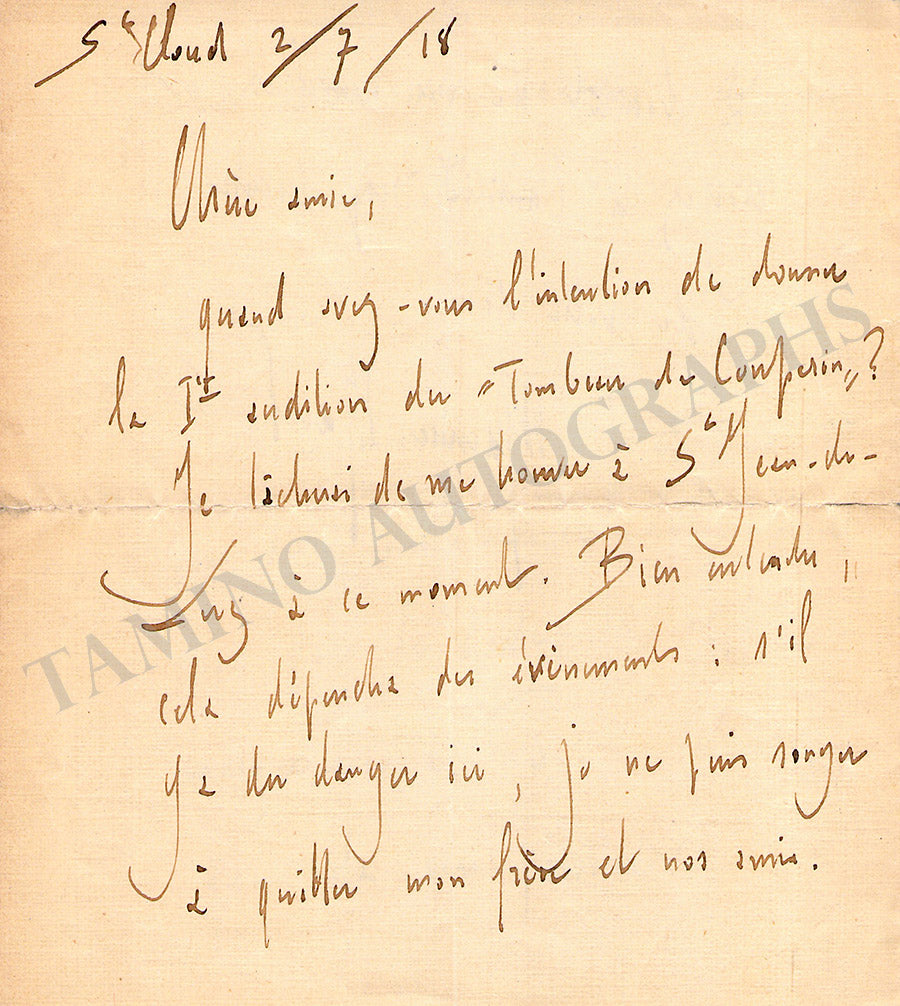 St Cloud 2/7/18
Chère amie,
quand avez-vous l'intention de donner
la Ière audition du "Tombeau de Couperin"?
Je tâcherai de me trouver à St Jean-de-
Luz à ce moment. Bien entendu,
cela dépendra des événements : s'il
y a du danger ici, je ne puis songer
à quitter mon frère et nos amis.
TAMINO AUTOGRAPHS